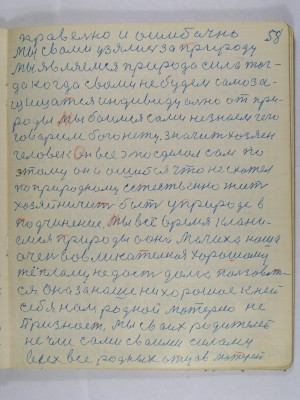 правельно и ошибачно 58
Мы с вами узялись за природу
Мы являемся природа сила тог-
да когда с вами не будем самоза-
щищатся индивидуално от при-
роды Мы боимся сами не знаем чего
говарим бога нету, значит хозяен
человек Он все это сделал сам по
этому он и ошибся что не схотел
по природному естественно жить
хозяйничить быть у природе в
подчинение Мы всё время клани-
емся природы а она Мачиха наша
очен
тёплому не дость дома
ся Она за наше ни хорошае к ней
себя нам родной матерью не
признает, Мы сваих родителей
не чли сами с ваими силами
всех все родных отцов матерей